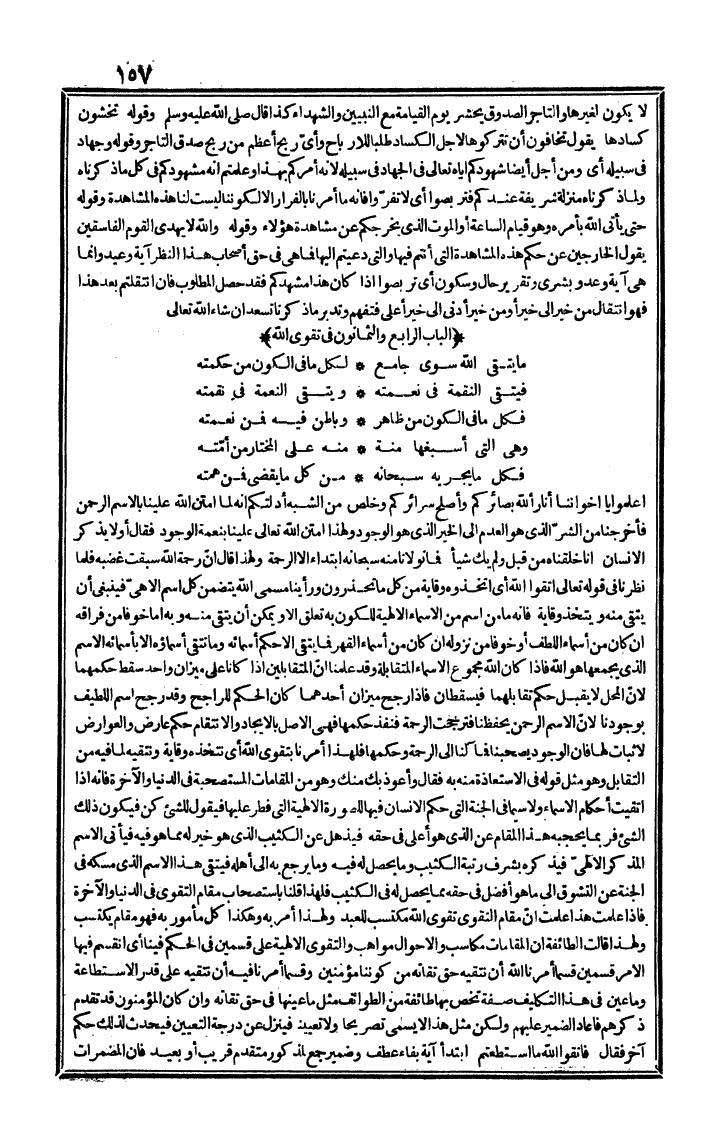 ١٥٧
لا يكون لغيرها والتاجر الصدوق يحشر يوم القيامة مع النبيين والشهداء كذا قال صلى الله عليه وسلم وقوله تخشون
كسادها يقول تخافون أن تتركوها لاجل الكساد طلبا للارباح وأى ربح أعظم من ربح صدق التاجر وقوله وجهاد
فى سبيله أى ومن أجل أيضا شهودكم اياه تعالى فى الجهاد فى سبيله لانه أمركم بهذا وعلمتم انه مشهودكم فى كل ماذكرناه
ولماذكرناه منزلة شريفة عندكم فتربصوا أى لا تفرّوا فانه ما أمرنا بالفرار الا لكوننا ليست لنا هذه المشاهدة وقوله
حتى يأتى الله بأمره وهو قيام الساعة أو الموت الذى يخرجكم عن مشاهدة هؤلاء وقوله والله لا يهدى القوم الفاسقين
يقول الخارجين عن حكم هذه المشاهدة التى أنتم فيها والتى دعيتم اليها فاهى فى حق أصحاب هذا النظر آية وعيد وانما
هى آية وعد وبشرى وتقرير حال وسكون أى تربصوا اذا كان هذا مشهدكم فقد حصل المطلوب فان انتقلتم بعد هذا
فهو انتقال من خير الى خير أو من خير أدنى الى خير أعلى فتفهم وتدبر ماذكرنا تسعد ان شاء الله تعالى
﴿الباب الرابع والثمانون فى تقوى الله﴾
مايتقى الله سوى جامع * لكل مافى الكون من حكمته
فيتقى النقمة فى نعمته * ويتقى النعمة فى نقمته
فكل مافى الكون من ظاهر * وباطن فيه فمن نعمته
وهى التى أسبغها منة * منه على المختار من أمّته
فكل مايجر به سبحانه * من كل مايقضى فمن همته
اعلموا يا اخواننا أنار الله بصائركم وأصلح سرائركم وخلص من الشبه أدلتكم انه لما امتن الله علينا بالاسم الرحمن
فأخرجنا من الشرّ الذى هو العدم الى الخير الذى هو الوجود ولهذا امتن الله تعالى علينا بنعمة الوجود فقال أولا يذكر
الانسان انا خلقناه من قبل ولم يك شيأ فانولانا منه سبحانه ابتداء الا الرحمة ولهذا قال ان رحمة الله سبقت غضبه فلما
نظرنا فى قوله تعالى اتقوا الله أى اتخذوه وقاية من كل ماتحذرون ورأينا مسمى الله يتضمن كل اسم الاهىّ فينبغى أن
يتقى منه ويتخذ وقاية فانه مامن اسم من الاسماء الالهية للكون به تعلق الا ويمكن أن يتقى منه وبه اما خوفا من فراقه
ان كان من أسماء اللطف أو خوفا من نزوله ان كان من أسماء القهر فما يتقى الا حكم أسمائه وما تتقى أسماؤه الا بأسمائه الاسم
الذى يجمعها هو الله فاذا كان الله مجموع الاسماء المتقابلة وقد علمنا انّ المتقابلين اذا كانا على ميزان واحد سقط حكمهما
لانّ المحل لا يقبل حكم تقابلهما فيسقطان فاذا رجح ميزان أحدهما كان الحكم للراجح وقد رجح اسم اللطيف
بوجودنا لانّ الاسم الرحمن يحفظنا فترجحت الرحمة فنفذ حكمها فهى الاصل بالايجاد والانتقام حكم عارض والعوارض
لا ثبات لها فان الوجود يصحبنا فما كنا الى الرحمة وحكمها فلهذا أمرنا بتقوى الله أى نتخذه وقاية ونتقيه لمافيه من
التقابل وهو مثل قوله فى الاستعاذة منه به فقال وأعوذ بك منك وهو من المقامات المستصحبة فى الدنيا والآخرة فانه اذا
اتقيت أحكام الاسماء ولاسيما فى الجنة التى حكم الانسان فيها للصورة الالهية التى فطر عليها فيقول للشئ كن فيكون ذلك
الشئ فربما يحجبه هذا المقام عن الذى هو أعلى فى حقه فيذهل عن الكثيب الذى هو خير له مما هو فيه فيأتى الاسم
المذكر الالهىّ فيذكره بشرف رتبة الكثيب وما يحصل له فيه وما يرجع به الى أهله فيتقى هذا الاسم الذى مسكه فى
الجنة عن التشوق الى ماهو أفضل فى حقه مما يحصل له فى الكثيب فلهذا قلنا باستصحاب مقام التقوى فى الدنيا والآخرة
فاذا علمت هذا علمت انّ مقام التقوى تقوى الله مكتسب للعبد ولهذا أمر به وهكذا كل مأمور به فهو مقام يكتسب
ولهذا قالت الطائفة ان المقامات مكاسب والاحوال مواهب والتقوى الالهية على قسمين فى الحكم فيناأى انقسم فيها
الامر قسمين قسما أمرنا الله أن نتقيه حق تقاته من كوننا مؤمنين وقسما أمرنا فيه أن نتقيه على قدر الاستطاعة
وماعين فى هذا التكليف صفة تخص بها طائفة من الطوائف مثل ماعينها فى حق تقاته وان كان المؤمنون قد تقدم
ذكرهم فاعاد الضمير عليهم ولكن مثل هذا لا يسمى تصريحا ولا تعيينا فينزل عن درجة التعيين فيحدث لذلك حكم
آخر فقال فاتقوا الله ما استطعتم ابتدأ آية بفاء عطف وضمير جمع لمذكور متقدم قريب أو بعيد فان المضمرات